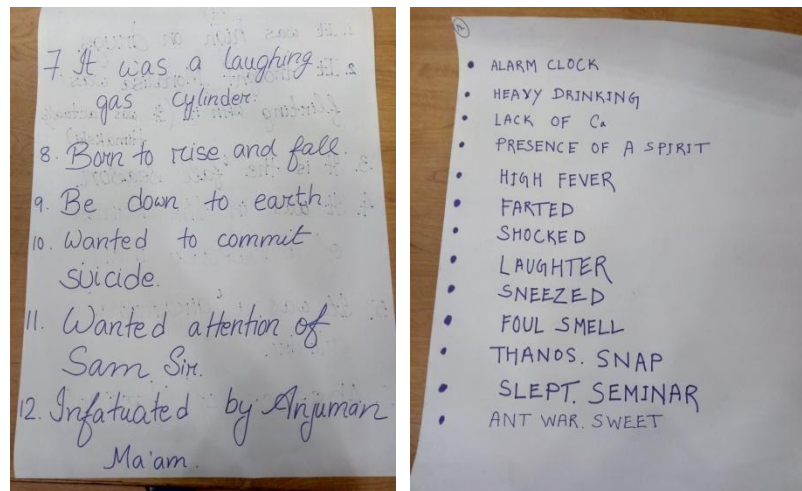 7. It was a laughing
gas cylinder.
8. Born to rise and fall.
9. Be down to earth.
10. Wanted to commit
suicide.
11. Wanted attention of
Sam Sir.
12. Infatuated by Anjuman
Ma'am.
• ALARM CLOCK
• HEAVY DRINKING
• LACK OF Ca
• PRESENCE OF A SPIRIT
• HIGH FEVER
• FARTED
• SHOCKED
• LAUGHTER
• SNEEZED
• FOUL SMELL
• THANOS. SNAP
• SLEPT. SEMINAR
• ANT WAR. SWEET